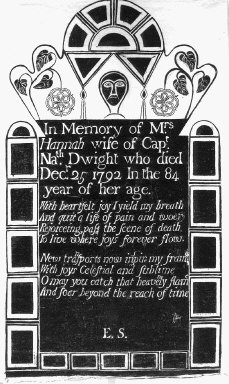 In Memory of Mrs
Hannah wife of Capt
Nath Dwight who died
Decr 25 1792 In the 84
year of her age.
With heartfelt joy I yield my breath
And quit a life of pain and woe
Rejoycing pass the scene of death
To live where joys forever flow.
New trasports now inspire my frame
With joys Celestial and sublime
O may you catch that heavenly flam
And soer beyond the reach of time
E. S.